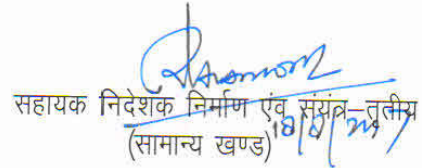 सहायक निदेशक निर्माण एंव संयंत्र–तृतीय
(सामान्य खण्ड)